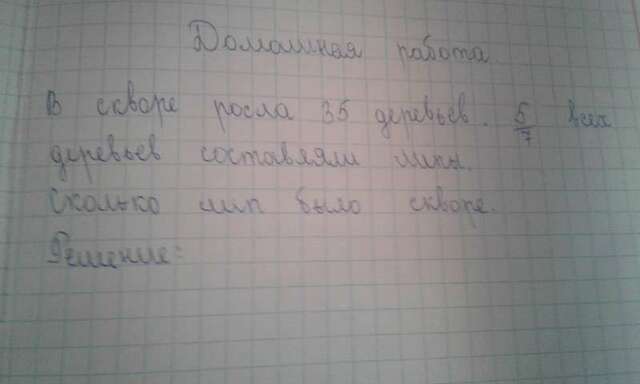 Домашная работа
В скворе росла 35 деревьев. 5/7 всех
деревьев составляли липы.
Сколько лип было скворе.
Решение: